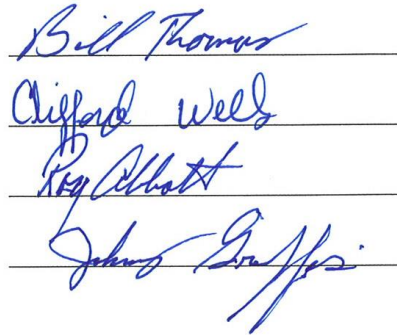 Bill Thomas
Clifford Wells
Roy Abbott
Johnny